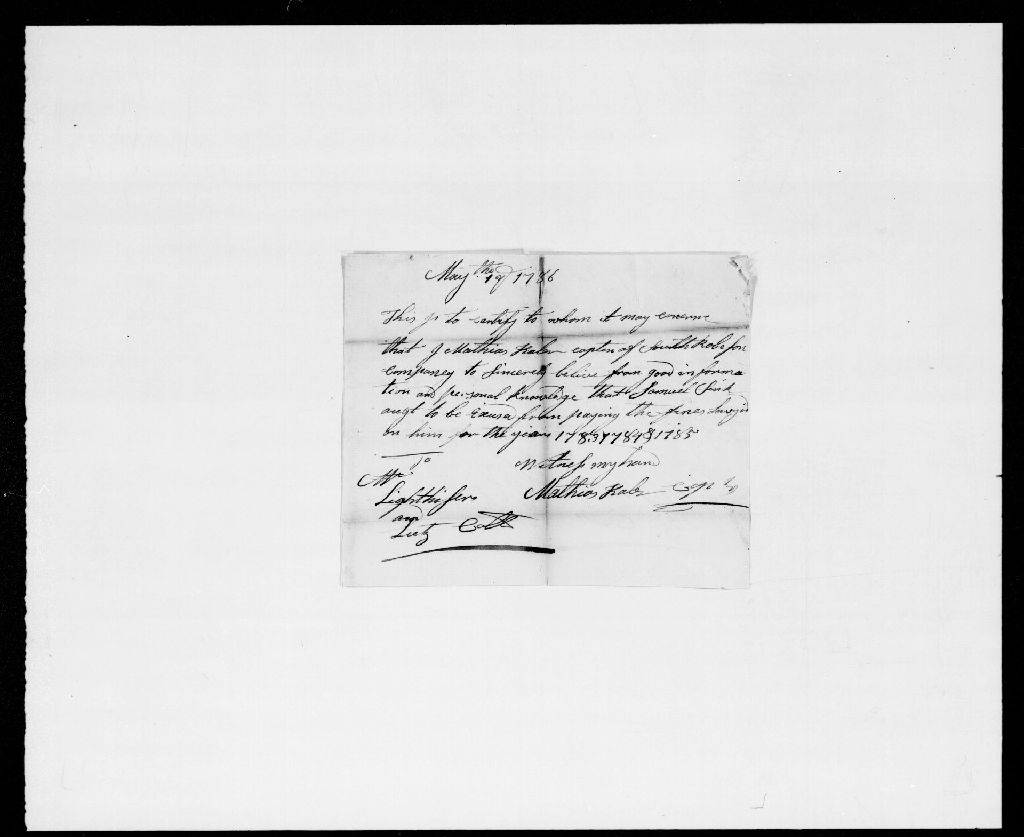 May the 19 1786
This is to certify to whom it may concern
that I Mathias Kaler captn of
company to sincerely belive from good informa
tion and personal knowledge that Samuel Sink
ought to be Excused from paying the fines
on him for the years 1783 1784 & 1785
To
Witness my hand
Mr
Lighthisers Mathias Kaler Capt
and
Lutz